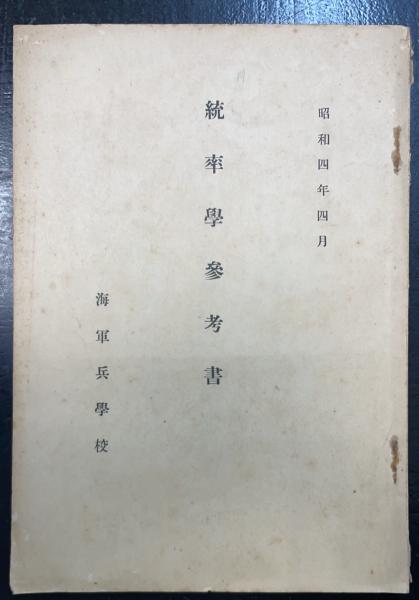 昭和四年四月
統率學參考書
海軍兵學校